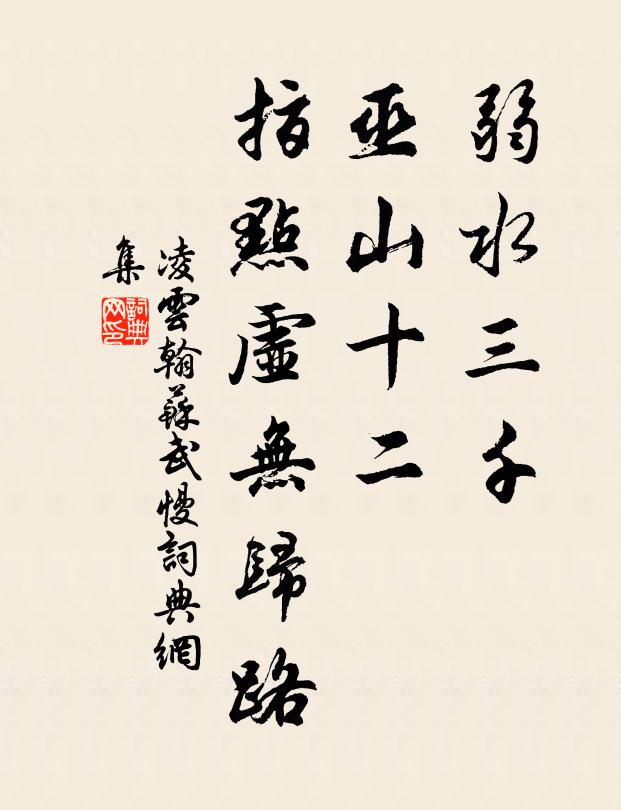 弱水三千
巫山十二
指點虛無歸路
凌雲翰蘇武慢詞典網
集
詞典網印